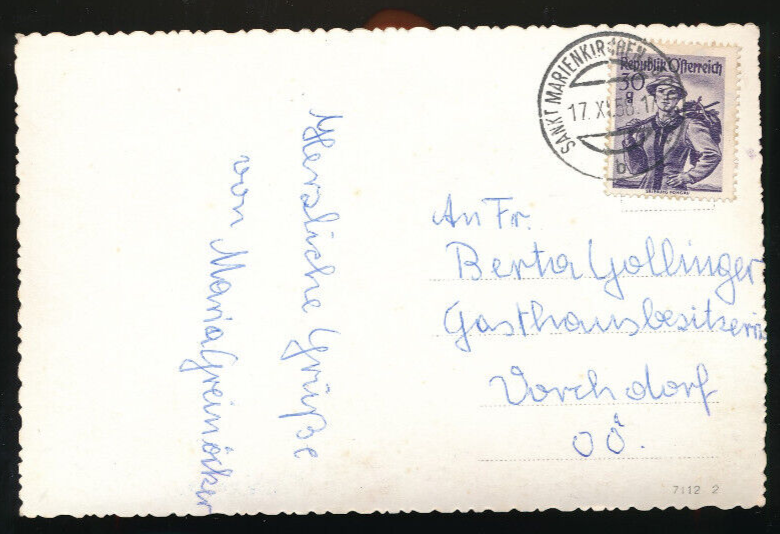 Herzliche Grüße
von Maria Greinöcker
SANKT MARIENKIRCHEN
17. XI. 58. 17
b
Republik Österreich
30 g
SALZBURG PONGAU
An Fr.
Berta Gollinger
Gasthausbesitzerin
Vorchdorf
OÖ.
7112 2